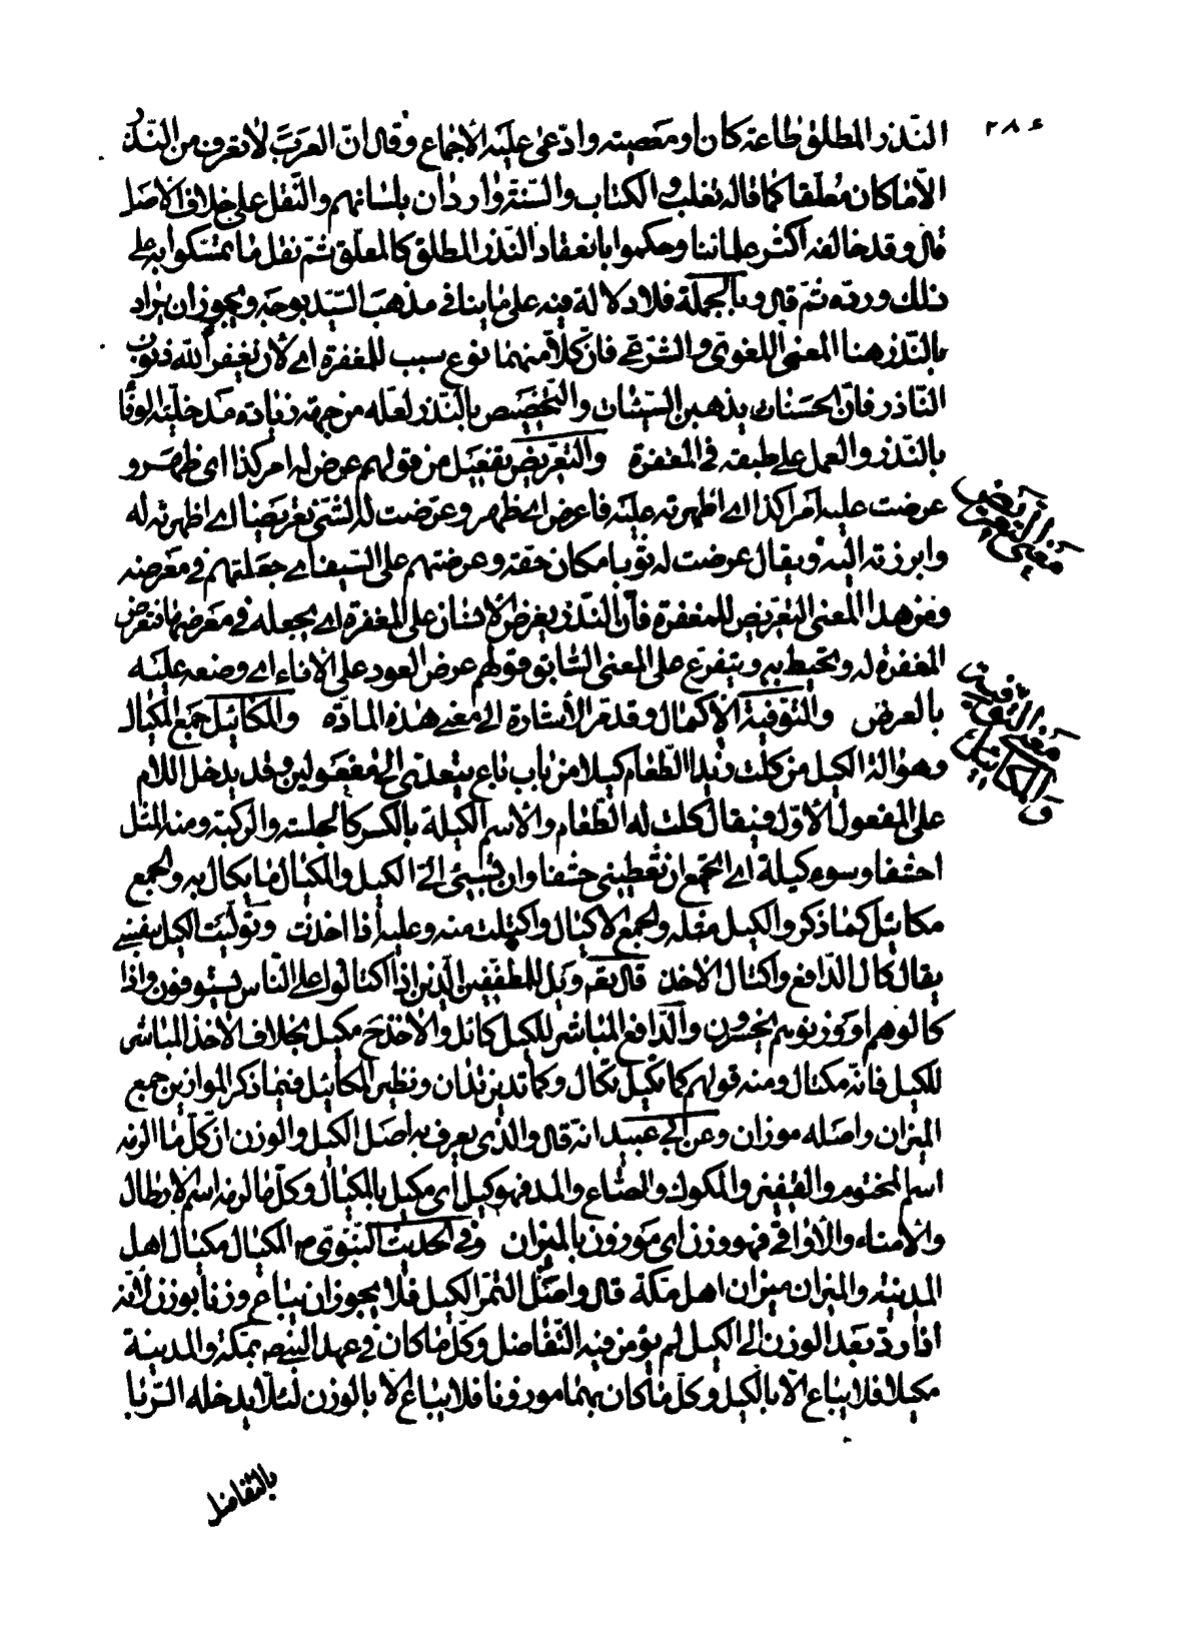 ٢٨٤
النّذر المطلق طاعة كان او معصيته وادّعى عليه الأجماع وقال انّ العرب لا تعرف من النّذر
الّا ما كان معلّقا كما قاله تغلب والكتاب والسّنة واردان بلسانهم والنّقل على خلاف الأصل
قال وقد خالفه اكثر علمائنا وحكموا بانعقاد النّذر المطلق كالمعلّق ثمّ نقل ما تمسّكوا به على
ذلك وردّه ثمّ قال وبالجملة فلا دلالة فيه على ما ينافي مذهب السّيّد بوجه ويجوز ان يراد
بالنّذر هنا المعنى اللغوي والشّرعي فانّ كلّا منهما نوع سبب للمغفرة اي لان يغفر الله ذنوب
النّاذر فانّ الحسنات يذهبن السّيّئات والتّخصيص بالنّذر لعله من جهة زيادة مدخليّة الوفا
بالنّذر والعمل على طبقه في المغفرة والتّعريض تفعيل من قولهم عرض له امر كذا اي ظهر و
عرضت عليه امر كذا اي اظهرته عليه فاعرض اي ظهر وعرّضت له الشّئ تعريضا اي اظهرته له
وابرزته اليه ويقال عرضت له ثوبا مكان حقه وعرضتهم على السّيف اي جعلتهم في معرضه
ومن هذا المعنى التّعريض للمغفرة فانّ النّذر يعرض الانسان على المغفرة اي يجعله في معرضها فتعرض
المغفرة له وتحيط به ويتفرع على المعنى السّابق قولهم عرض العود على الاناء اي وضعه عليه
بالعرض والتّوفية الأكمال وقد مر الأشارة الى معنى هذه المادّة والمكائيل جمع المكيال
وهو الة الكيل من كلت زيدا الطّعام كيلا من باب باع يتعدّى الى مفعولين وقد يدخل اللام
على المفعول الأوّل فيقال كلت له الطّعام والاسم الكيلة بالكسر كالجلسة والركبة ومنه المثل
احشفا وسوء كيلة اي اتجمع ان تعطيني حشفا وان تسيئ الىّ الكيل والمكيال ما يكال به والجمع
مكائيل كما ذكر والكيل مثله والجمع الاكيال واكتلت منه وعليه اذا اخذت وتولّيت الكيل بنفسي
يقال كال الدّافع واكتال الآخذ قال تعم ويل للمطفّفين الّذين اذا اكتالوا على النّاس يستوفون واذا
كالوهم او وزنوهم يخسرون والدّافع المباشر للكيل كائل والآخذ ح مكيل بخلاف الآخذ المباشر
للكيل فانّه مكتال ومنه قولهم كما تكيل تكال وكما تدين تدان ونظير المكائيل فيما ذكر الموازين جمع
الميزان واصله موزان وعن ابي عبيد انه قال والذّي يعرف به اصل الكيل والوزن انّ كلّ ما الزمه
اسم المختوم والقفيز والمكوك والصّاع والمد فهو كيل اي مكيل بالمكيال وكلّ ما لزمه اسم الارطال
والامناء والأواقي فهو وزن اي موزون بالميزان وفي الحديث النّبوّي ص المكيال مكيال اهل
المدينة والميزان ميزان اهل مكّة قال واصل التّمر الكيل فلا يجوز ان يباع وزنا بوزن لأنّه
اذا ردّ بعد الوزن الى الكيل لم يؤمن فيه التّفاضل وكلّ ما كان في عهد النّبي ص بمكّة والمدينة
مكيلا فلا يباع الّا بالكيل وكلّ ما كان بهما موزونا فلا يباع الّا بالوزن لئلّا يدخله الرّبا
بالتّفاضل
معنى التعريض
معنى التوفية
والمكائيل